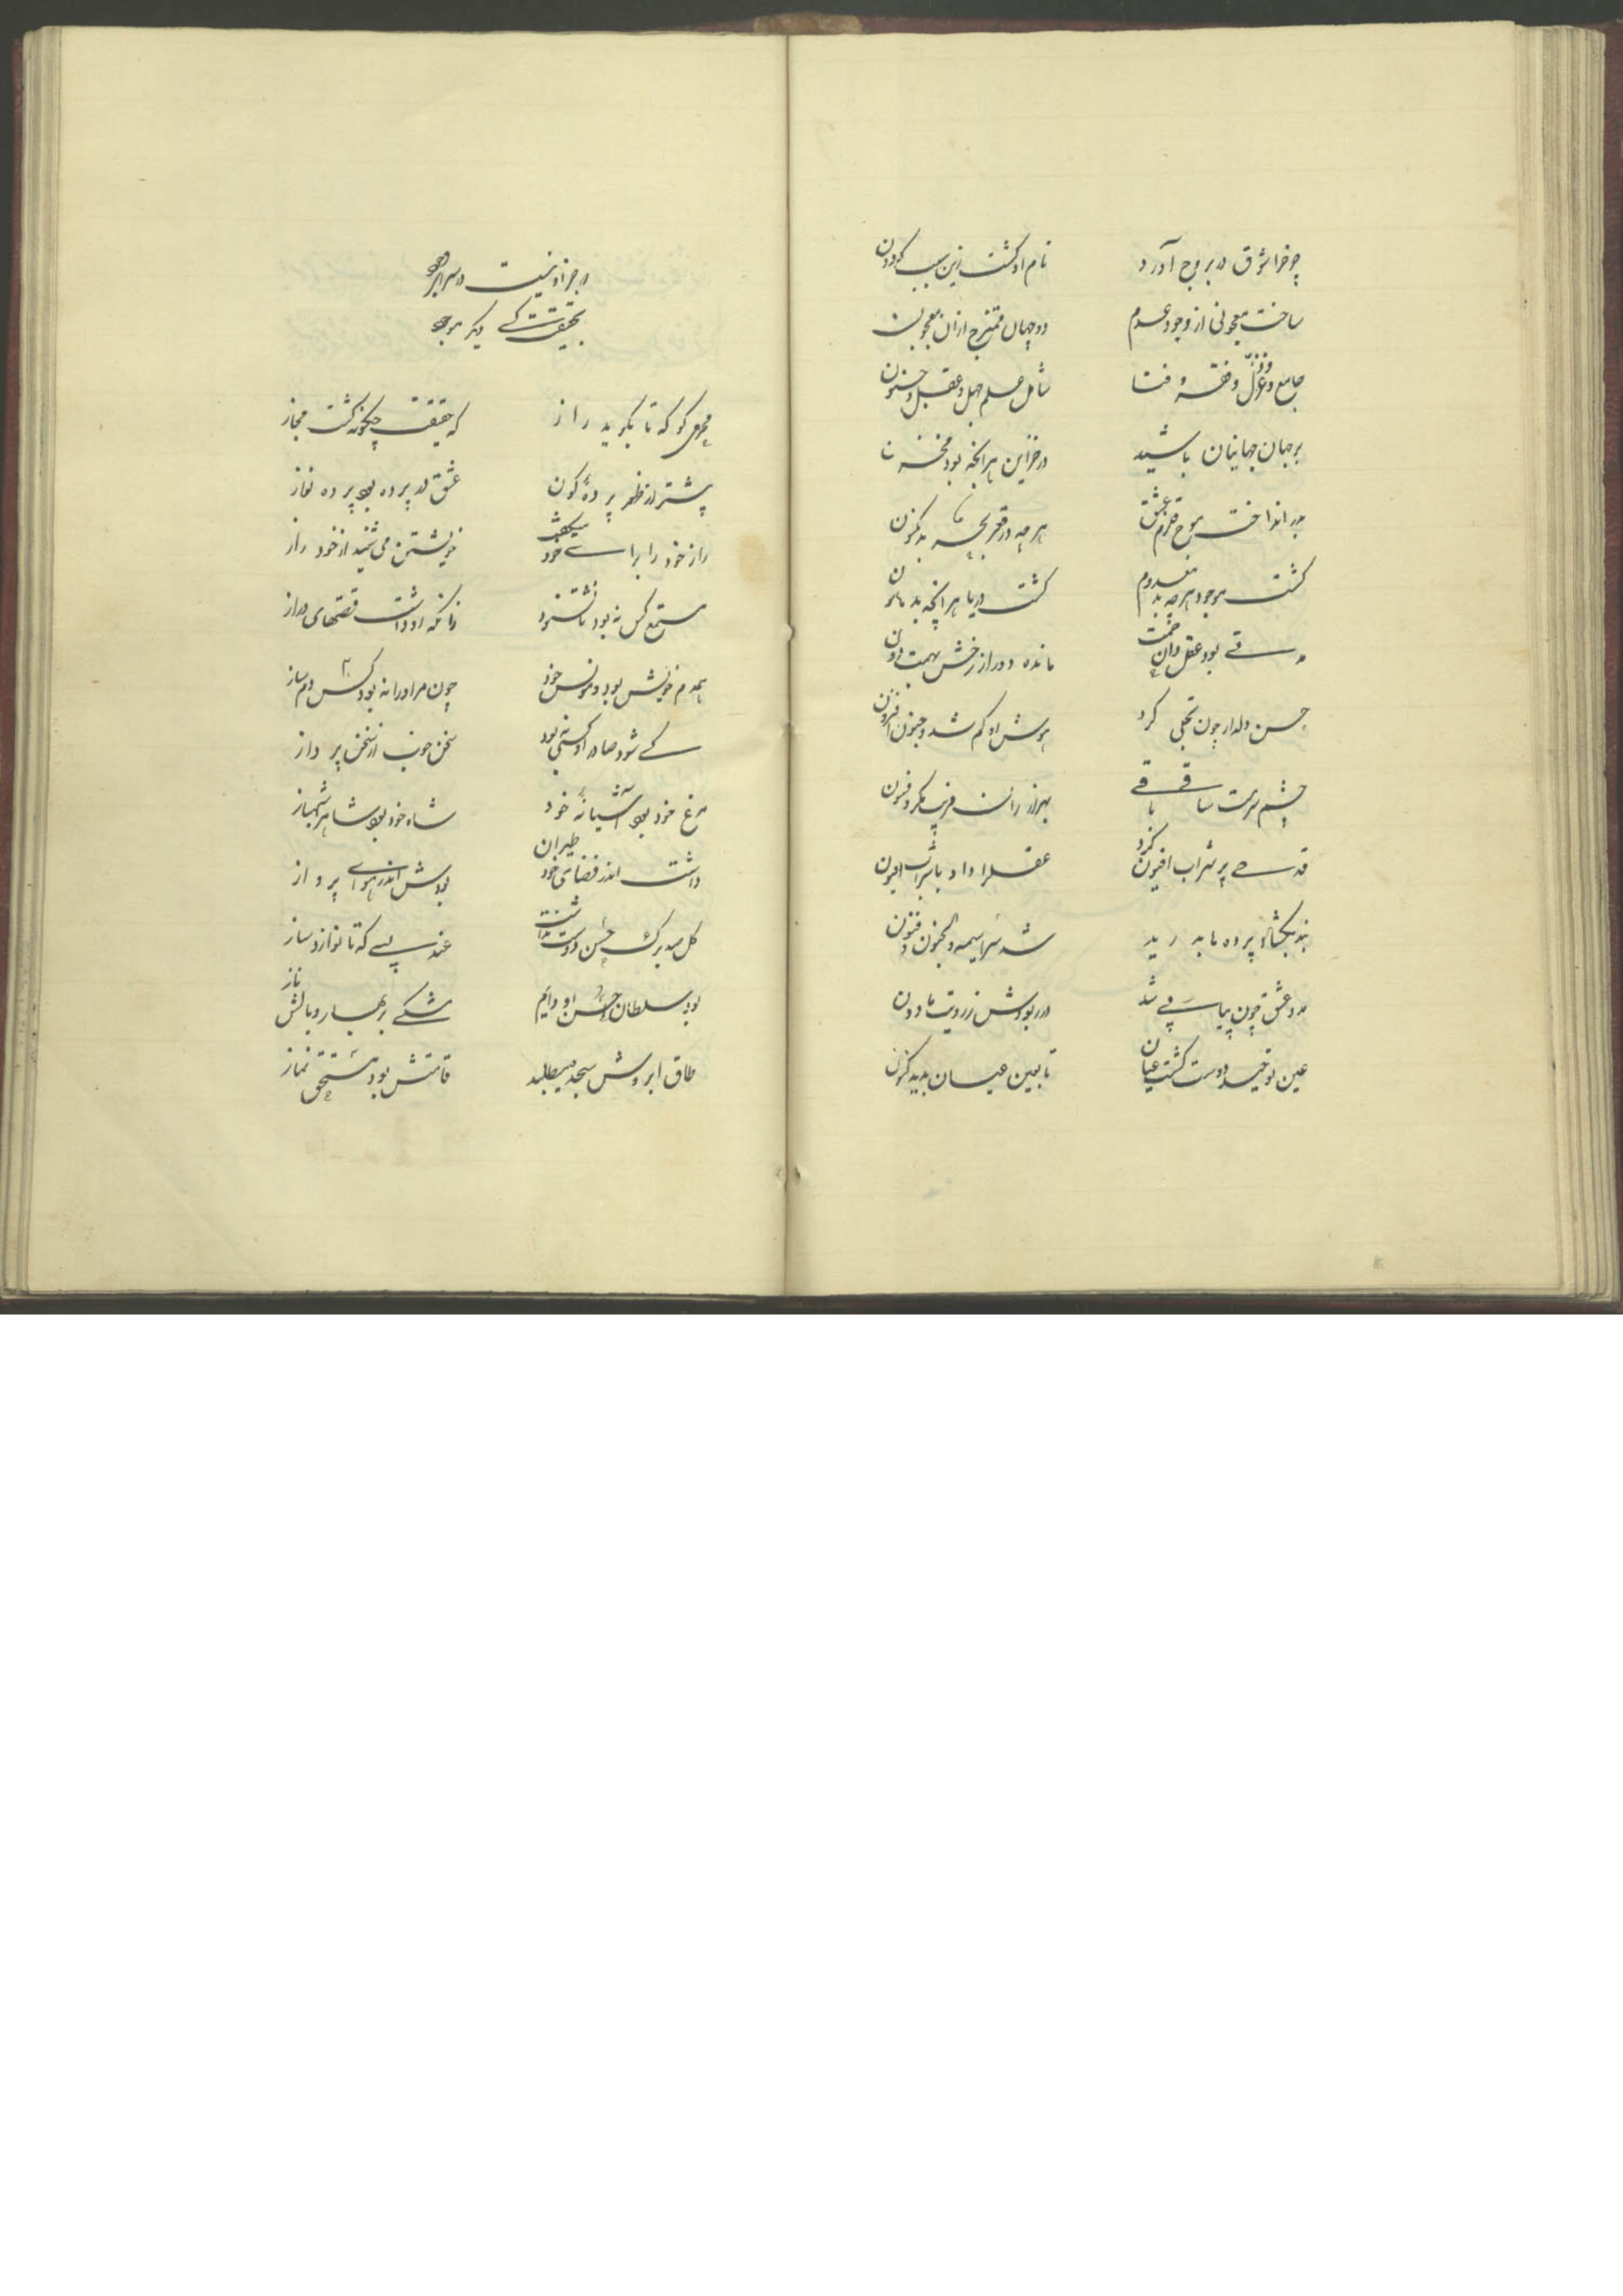 چرخ را شوق در بروج آورد نام او گشت زین سبب گردون
ساخت معجونی از وجود و عدم دو جهان ممتزج از ان معجون
جامع و عز و ذل و فقر و غنا شامل علم و جهل و عقل و جنون
بر جهان جهانیان پاشید در خزاین هر آنچه بود مخزون
بدر انداخت موج قلزم عشق هر چه در قعر بحر بد مکنون
گشت موجود هر چه بد معدوم گشت دریا هر آنچه بد هامون
مدتے بود عقل دان همت مانده دور از رخش بهمت دون
حسن دلدار چون تجلی کرد هوش او کم شد و جنون افزون
چشم سرمست ساقی باقے بهزاران فریب و مکر و فسون
قدحے پر شراب افیون کرد عقل را داد با شراب افیون
بند بگشاد و پرده ها بدرید شد سراسیمه و الجنون فنون
مرد عشق چون پیاپے شد در ربودش ز رویت مادون
عین توحید دوست گشت عیان تا بعین عیان بدید کنون
که جز او نیست در سرای وجود
بحقیقت کسے دیگر موجود
محرمی کو که تا بگوید راز که حقیقت چگونه گشت مجاز
پیشتر از ظهور پردهٔ کون عشق در پرده بود پرده نواز
راز خود را براے خود میگفت خویشتن می شنید از خود راز
مستمع کس نه بود تا شنود زانکه او داشت قصهای دراز
همدم خویش بود و مونس خود چون مر او را نه بود کس دمساز
کے شود صادر او کسی نبود سخن خوب از سخن پرداز
مرغ خود بود آشیانهٔ خود شاه خود بود شاهد و شهباز
داشت اندر فضای خود طیران بودش اندر هواے پرواز
گل صد برگ حسن دوست نداشت عندلیبے که تا نوازد ساز
بود سلطان حسن او دایم متکے بر بهار و بالش ناز
طاق ابروش سجده میطلبد قامتش بود مستحق نماز